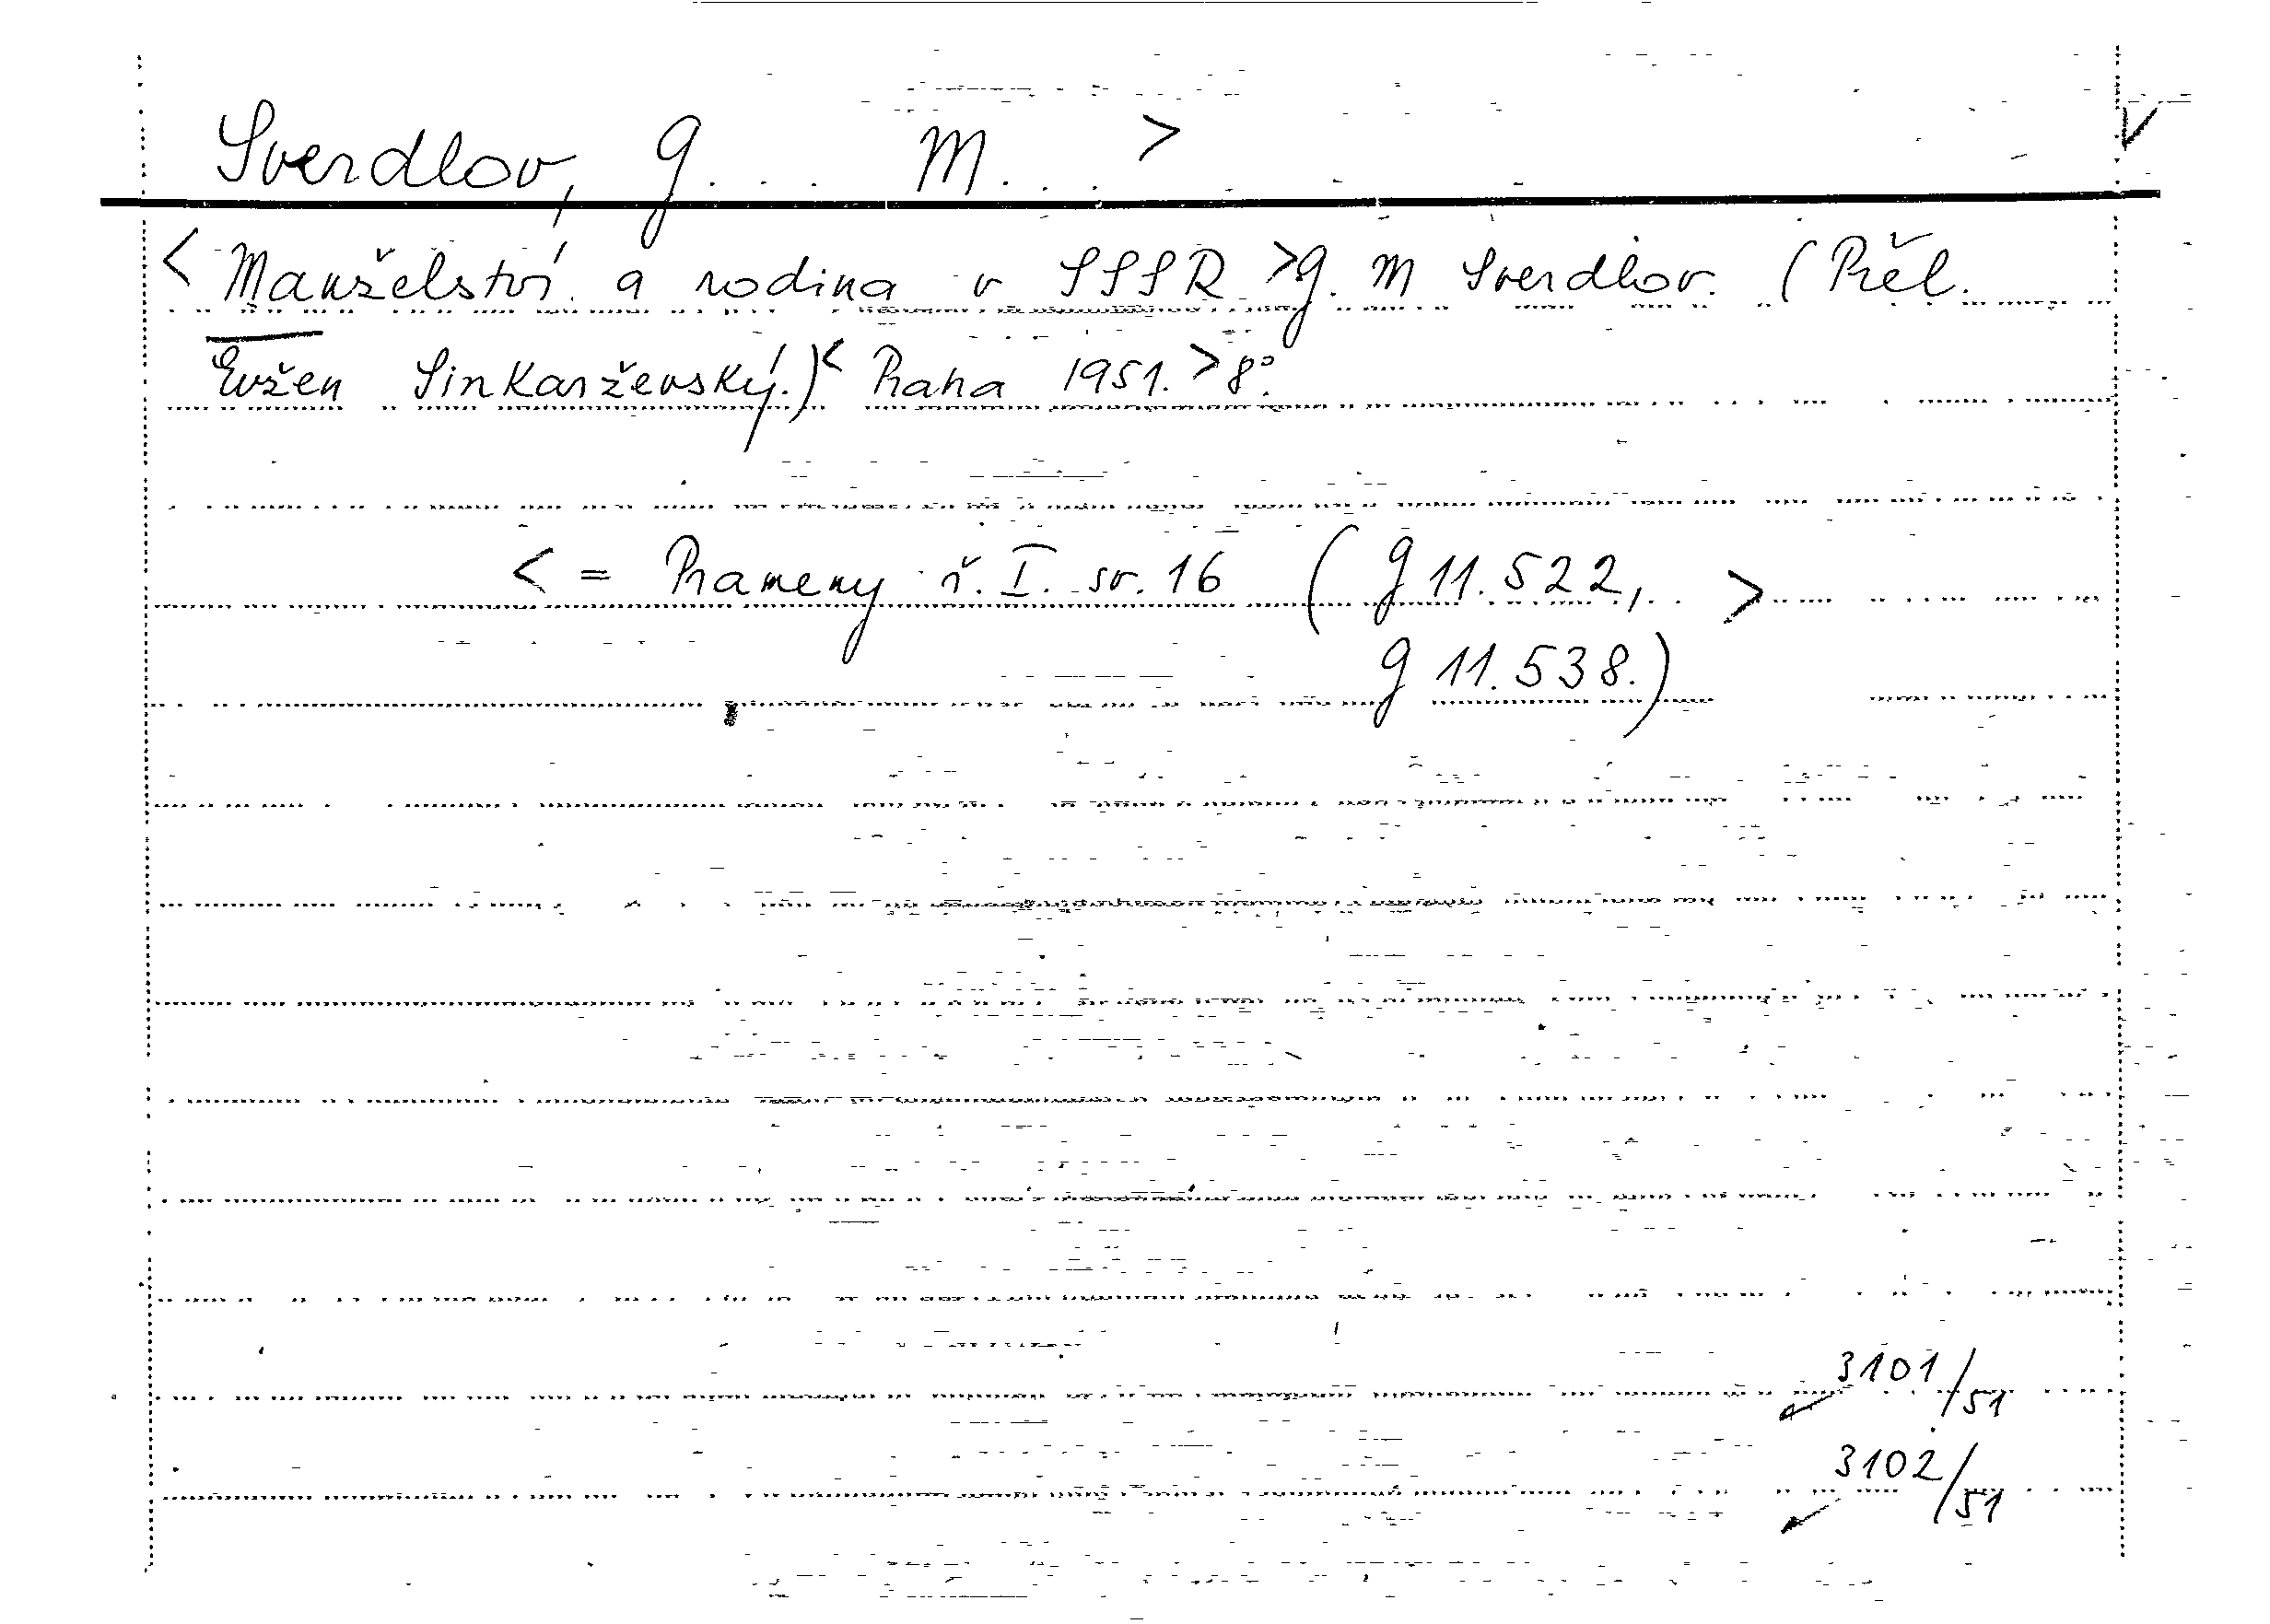 Sverdlov, G... M... > V
< Manželství a rodina v SSSR > G. M Sverdlov. (Přel.
Evžen Sinkarževský.) < Praha 1951. > 8°.
< = Prameny ř. I. sv. 16 (G 11.522, >
G 11.538.)
3101/51
3102/51